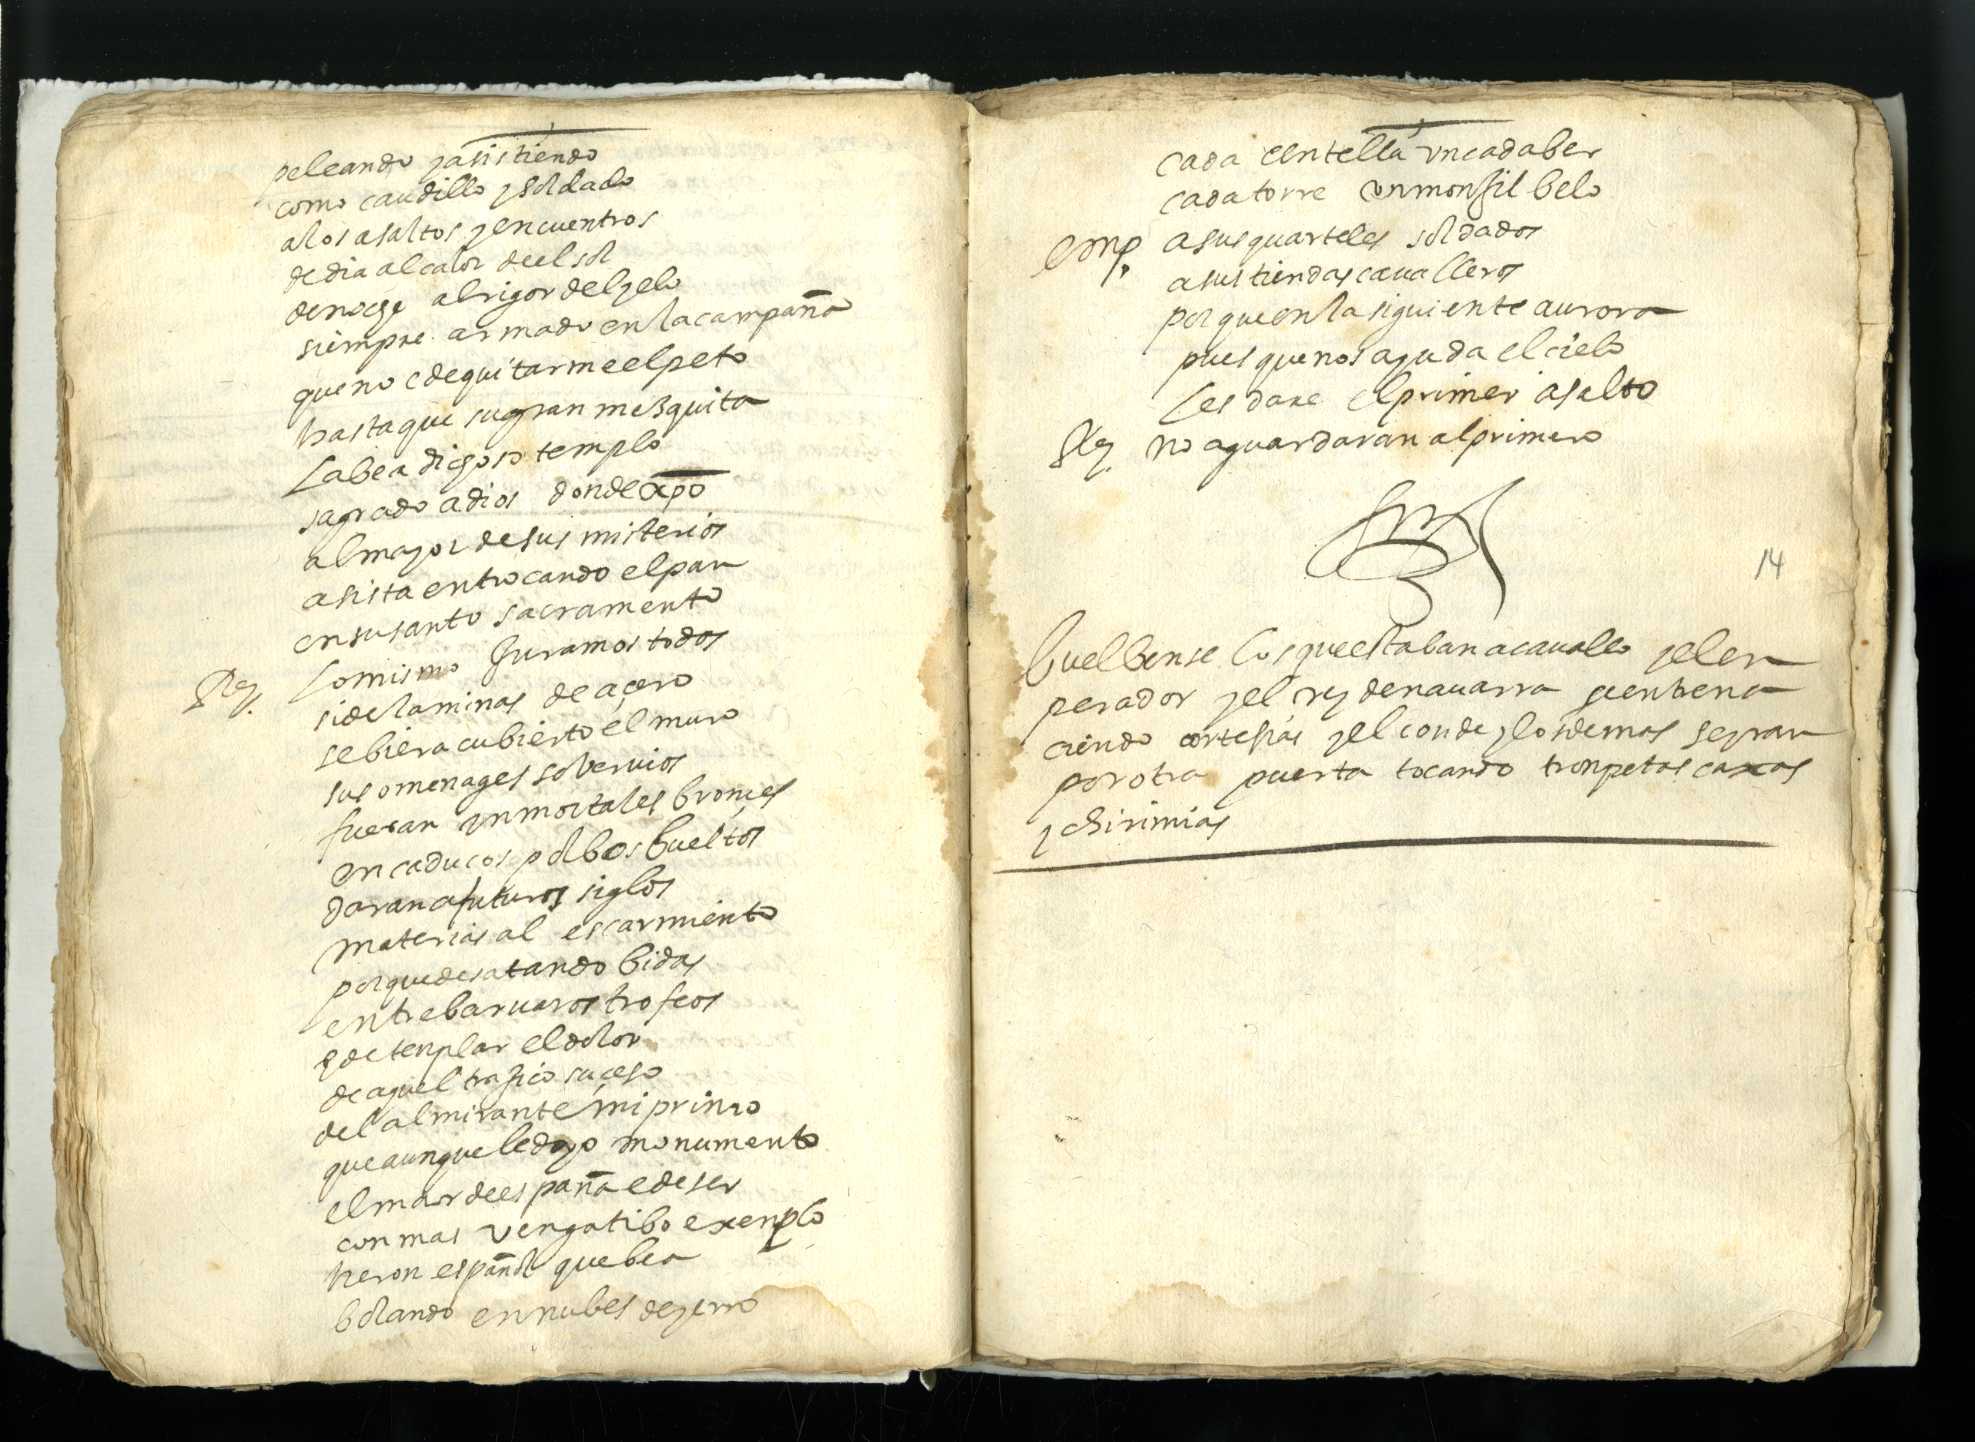 peleando y asistiendo
como caudillo y soldado
a los asaltos y encuentros
de dia al calor de el sol
de noche al rigor del yelo
siempre armado en la campaña
que no e de quitarme el peto
hasta que su gran mezquita
la bea dichoso templo
sagrado a dios donde xpo
al mayor de sus misterios
asista en trocando el pan
en su santo sacramento
Rey. lo mismo Juramos todos
si de laminas de açero
se biera cubierto el muro
sus omenages sobervios
fueran inmortales bronçes
en caducos polbos bueltos
daran a futuros siglos
materias al escarmiento
porque desatando bidas
entre barvaros trofeos
e de tenplar el dolor
de aquel trajico suçeso
del almirante mi primo
que aunque le dio monumento
el mar de españa e de ser
con mas vengatibo exenplo
neron español que bea
bolando en nubes de yerro
cada centella un cadaber
cada torre un monjibelo
Emp. a sus quarteles soldados
a sus tiendas cavalleros
porque en la siguiente aurora
pues que nos ayuda el cielo
les dare el primer asalto
Rey. no aguardaran al primero
14
buelbense los que estaban a cavallo y el en
perador y el rey de navarra se entren a
ciendo cortesias y el conde y los demas se yran
por otra puerta tocando tronpetas caxas
y chirimias